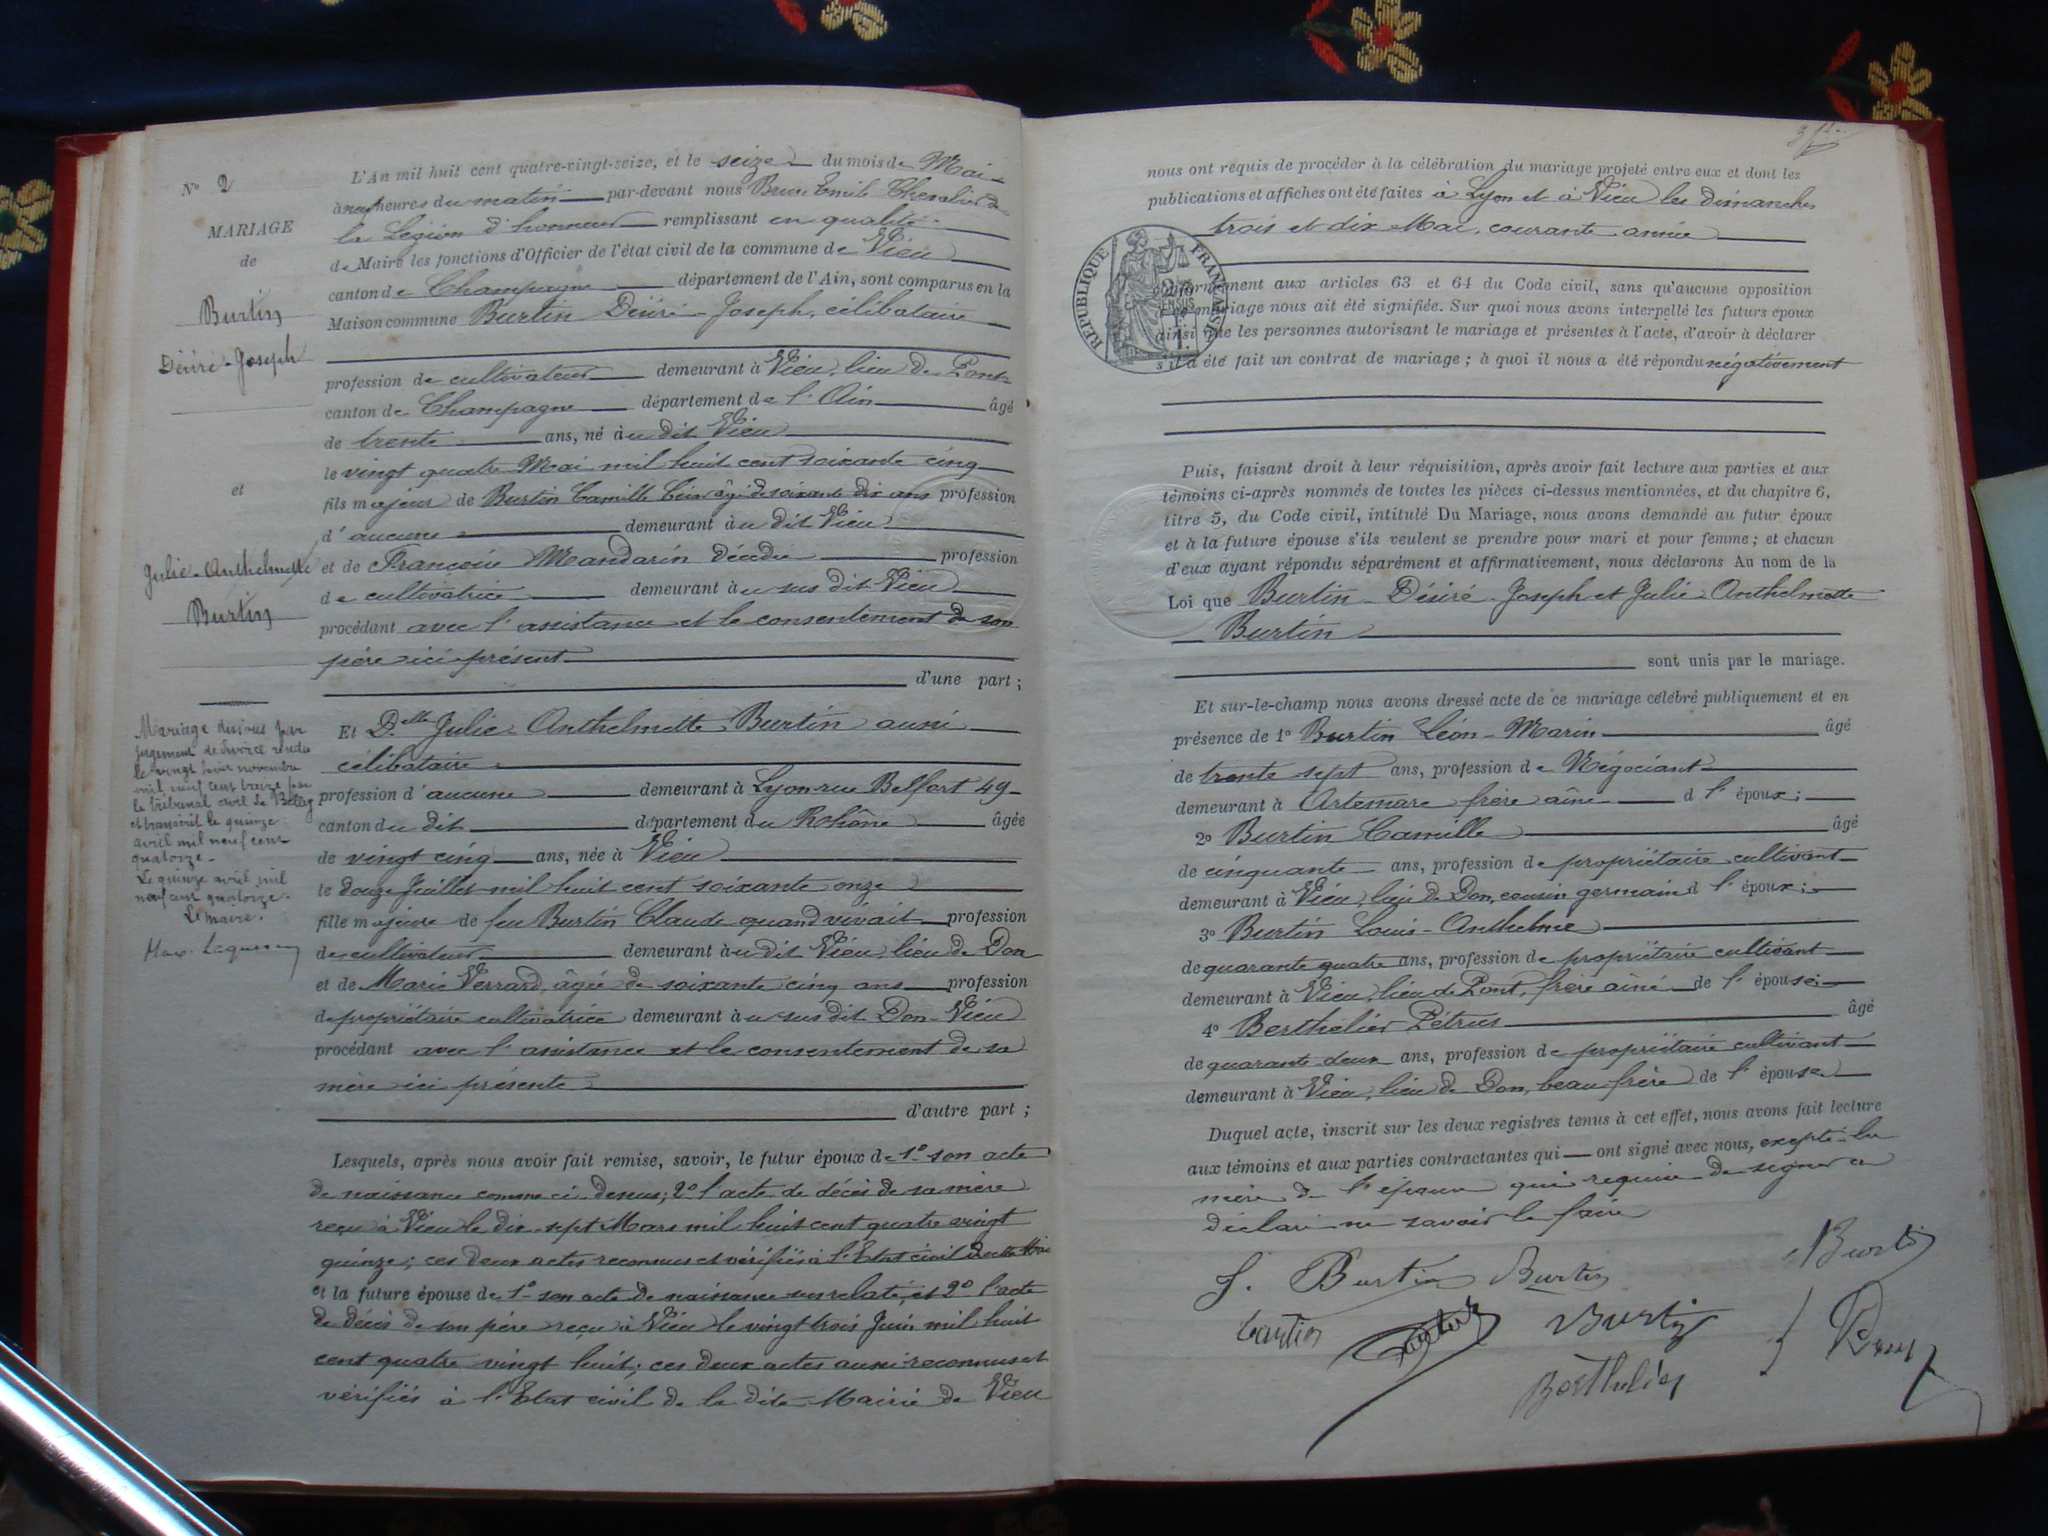 N° 2
MARIAGE
de
Burtin
Désiré-Joseph
et
Julie-Anthelmette
Burtin
Mariage dissous par
jugement de divorce rendu
le vingt novembre
mil neuf cent treize par
le tribunal civil de Belley
et transcrit le quinze
avril mil neuf cent
quatorze.
Le quinze avril mil
neuf cent quatorze.
Le maire.
L'An mil huit cent quatre-vingt-seize, et le seize du mois de Mai
à neuf heures du matin par-devant nous Brun Emile Chevalier de
la Légion d'honneur remplissant en qualité
de Maire les fonctions d'Officier de l'état civil de la commune de Vieu
canton de Champagne département de l'Ain, sont comparus en la
Maison commune Burtin Désiré-Joseph, célibataire
profession de cultivateur demeurant à Vieu, lieu de Pont
canton de Champagne département de l'Ain âgé
de trente ans, né au dit Vieu
le vingt quatre Mai mil huit cent soixante cinq
fils majeur de Burtin Camille âgé de soixante dix ans profession
d'aucune demeurant au dit Vieu
et de Françoise Mandarin décédée profession
de cultivatrice demeurant au sus dit Vieu
procédant avec l'assistance et le consentement de son
père ici présent
d'une part ;
Et Delle Julie-Anthelmette Burtin aussi
célibataire
profession d'aucune demeurant à Lyon rue Belfort 49
canton du dit département du Rhône âgée
de vingt cinq ans, née à Vieu
le douze Juillet mil huit cent soixante onze
fille majeure de feu Burtin Claude quand vivait profession
de cultivateur demeurant au dit Vieu, lieu de Don
et de Marie Verrard, âgée de soixante cinq ans profession
de propriétaire cultivatrice demeurant au sus dit Don-Vieu
procédant avec l'assistance et le consentement de sa
mère ici présente
d'autre part ;
Lesquels, après nous avoir fait remise, savoir, le futur époux de 1° son acte
de naissance comme ci-dessus; 2° l'acte de décès de sa mère
reçu à Vieu le dix-sept Mars mil huit cent quatre vingt
quinze; ces deux actes reconnus et vérifiés à l'Etat civil
et la future épouse de 1° son acte de naissance susrelaté, et 2° l'acte
de décès de son père reçu à Vieu le vingt trois Juin mil huit
cent quatre vingt huit; ces deux actes aussi reconnus et
vérifiés à l'Etat civil de la dite Mairie de Vieu
nous ont requis de procéder à la célébration du mariage projeté entre eux et dont les
publications et affiches ont été faites à Lyon et à Vieu les dimanches
trois et dix Mai, courante année
RÉPUBLIQUE FRANÇAISE
conformément aux articles 63 et 64 du Code civil, sans qu'aucune opposition
à ce mariage nous ait été signifiée. Sur quoi nous avons interpellé les futurs époux
ainsi que les personnes autorisant le mariage et présentes à l'acte, d'avoir à déclarer
s'il a été fait un contrat de mariage ; à quoi il nous a été répondu négativement
Puis, faisant droit à leur réquisition, après avoir fait lecture aux parties et aux
témoins ci-après nommés de toutes les pièces ci-dessus mentionnées, et du chapitre 6,
titre 5, du Code civil, intitulé Du Mariage, nous avons demandé au futur époux
et à la future épouse s'ils veulent se prendre pour mari et pour femme ; et chacun
d'eux ayant répondu séparément et affirmativement, nous déclarons Au nom de la
Loi que Burtin-Désiré-Joseph et Julie-Anthelmette
Burtin
sont unis par le mariage.
Et sur-le-champ nous avons dressé acte de ce mariage célébré publiquement et en
présence de 1° Burtin Léon-Marin âgé
de trente sept ans, profession de Négociant
demeurant à Artemare frère aîné d l'époux ;
2° Burtin Camille âgé
de cinquante ans, profession de propriétaire cultivant
demeurant à Vieu, lieu de Don, cousin germain d l'époux ;
3° Burtin Louis-Anthelme
de quarante quatre ans, profession de propriétaire cultivant
demeurant à Vieu, lieu de Pont, frère aîné de l'épouse
4° Berthelier Pétrus âgé
de quarante deux ans, profession de propriétaire cultivant
demeurant à Vieu, lieu de Don, beau-frère de l'épouse
Duquel acte, inscrit sur les deux registres tenus à cet effet, nous avons fait lecture
aux témoins et aux parties contractantes qui ont signé avec nous, excepté la
mère de l'épouse qui requise de signer a
déclaré ne savoir le faire
J. Burtin Burtin Burtin
Burtin Burtin
Berthelier Brun